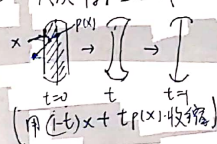 x p(x)
→ →
t=0 t t=1
(用(1-t)x + tp(x)收缩)